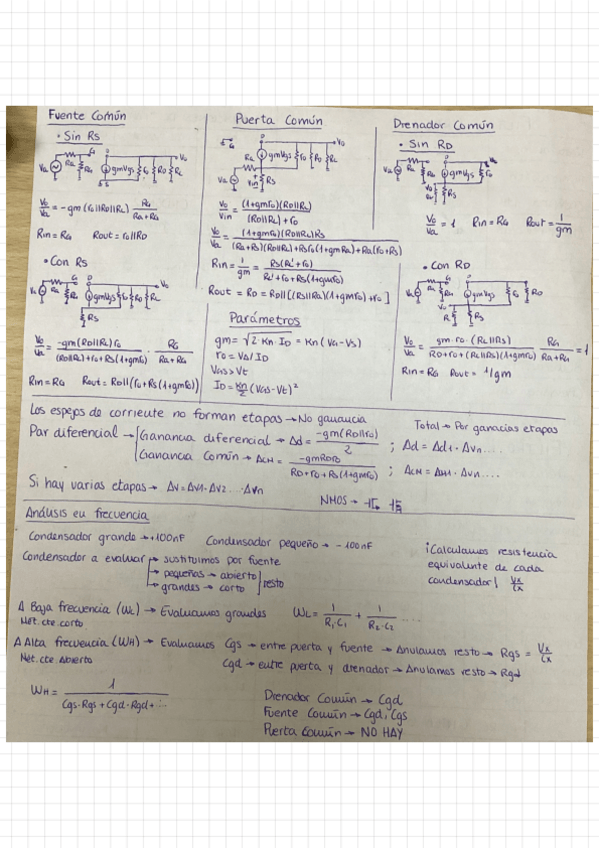 Fuente Común
• Sin Rs
Vo/Va = -gm (ro||RD||RL) RG/(Ra+RG)
Rin = RG Rout = ro||RD
• Con Rs
Vo/Va = -gm (RD||RL) ro/((RD||RL)+ro+Rs(1+gmro)) · RG/(Ra+RG)
Rin = RG Rout = RD||(ro+Rs(1+gmro))
Puerta Común
Vo/Vin = (1+gmro)(RD||RL)/((RD||RL)+ro)
Vo/Va = (1+gmro)(RD||RL)Rs/((Ra+Rs)(RD||RL)+Rsro(1+gmRa)+Ra(ro+Rs))
Rin = 1/gm = Rs(RL'+ro)/(RL'+ro+Rs(1+gmro))
Rout = RD = RD||[(Rs||Ra)(1+gmro)+ro]
Parámetros
gm = √2 Kn·ID = Kn (VG-VS)
ro = VA/ID
VGS > Vt
ID = Kn/2 (VGS-Vt)²
Drenador Común
• Sin RD
Vo/Va = 1 Rin = RG Rout = 1/gm
• Con RD
Vo/Va = gm·ro·(RL||Rs)/(RD+ro+(RL||Rs)(1+gmro)) RG/(Ra+RG) = 1
Rin = RG Rout = 1/gm
Los espejos de corriente no forman etapas → No ganancia
Total → Por ganacias etapas
Par diferencial → Ganancia diferencial → Ad = -gm(RD||ro)/2 ; Ad = Ad1·Avn....
Ganancia Común → ACM = -gmRDro/(RD+ro+Rs(1+gmro)) ; ACM = AM1·Avn....
Si hay varias etapas → Av = Av1·Av2 ...·Avn
NMOS →
Análisis en frecuencia
Condensador grande → +100nF Condensador pequeño → -100nF
Condensador a evaluar → sustituimos por fuente
→ pequeñas → abierto
→ grandes → corto
resto
¡Calculamos resistencia
equivalente de cada
condensador! Vx/Ix
Δ Baja frecuencia (WL) → Evaluamos grandes WL = 1/(R1·C1) + 1/(R2·C2)
Mét. cte. corto
Δ Alta frecuencia (WH) → Evaluamos Cgs → entre puerta y fuente → Anulamos resto → Rgs = Vx/Ix
Mét. cte. Abierto
Cgd → entre puerta y drenador → Anulamos resto → Rgd
WH = 1/(Cgs·Rgs + Cgd·Rgd + ...)
Drenador Común → Cgd
Fuente Común → Cgd, Cgs
Puerta Común → NO HAY